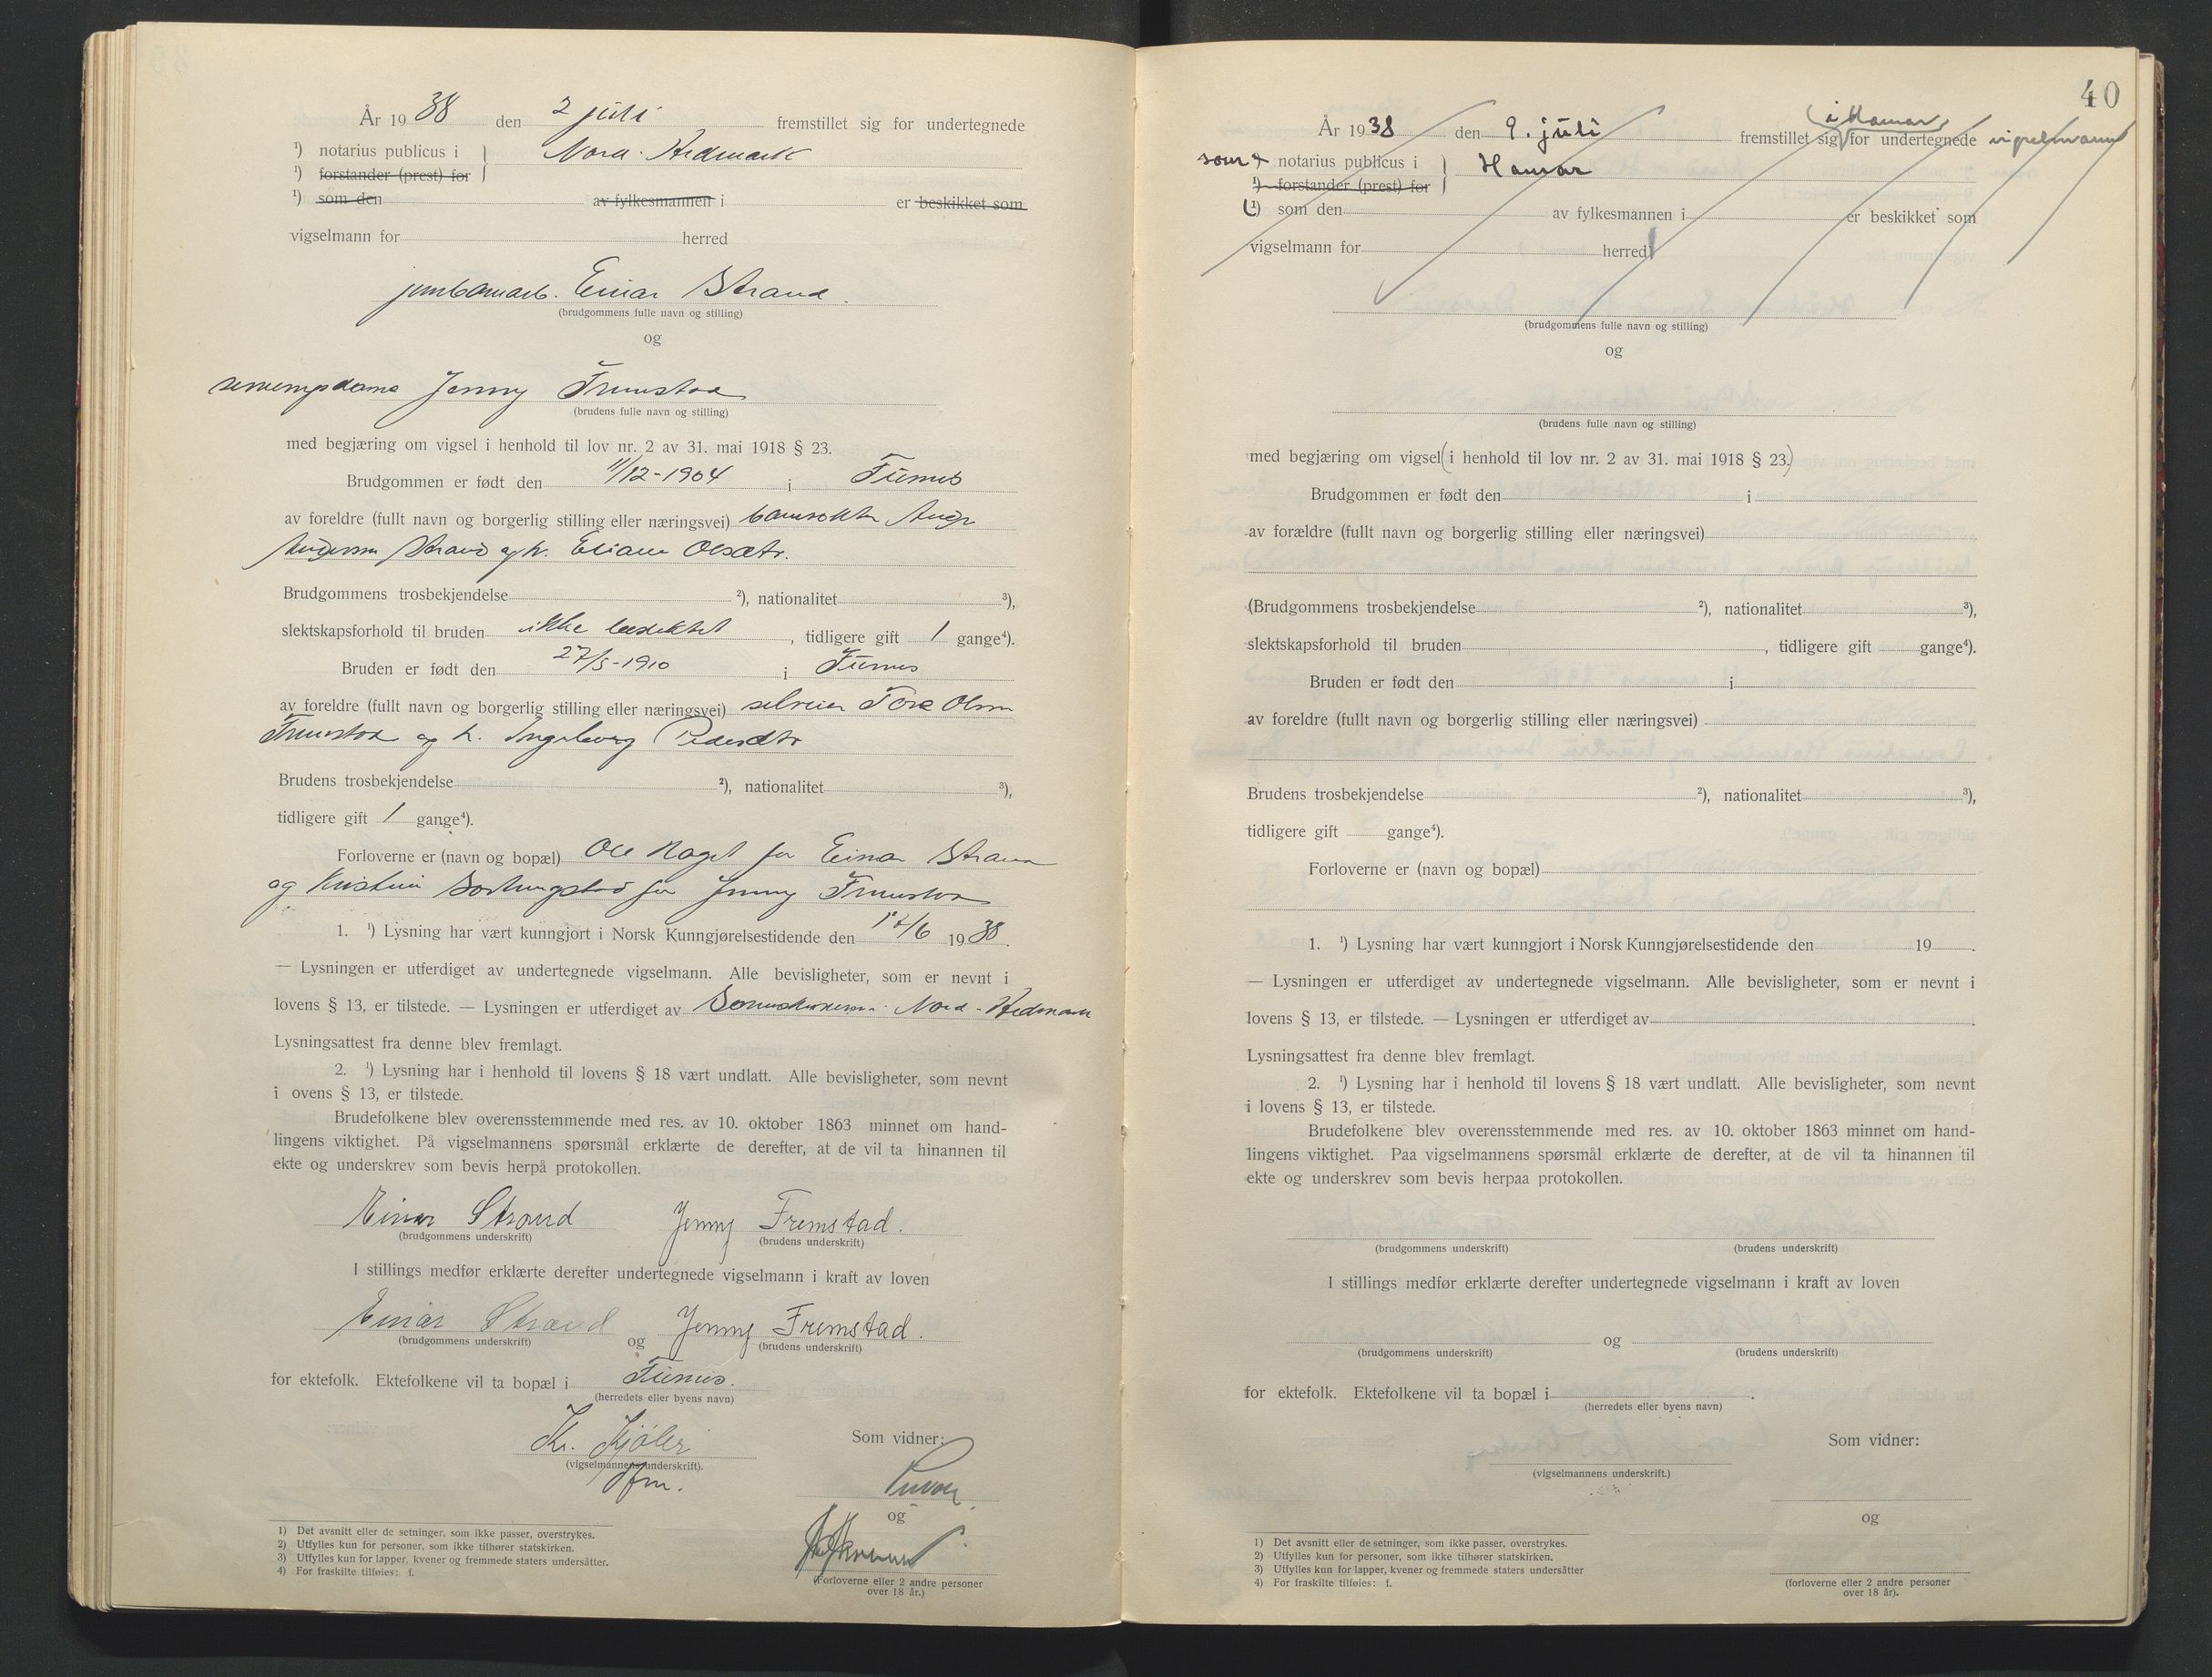 År 1938 den 2 juli fremstillet sig for undertegnede
¹) notarius publicus i Nord-Hedmark
¹) forstander (prest) for
¹) som den av fylkesmannen i er beskikket som
vigselmann for herred
Einar Strand.
(brudgommens fulle navn og stilling)
og
Jenny Fremstad
(brudens fulle navn og stilling)
med begjæring om vigsel i henhold til lov nr. 2 av 31. mai 1918 § 23.
Brudgommen er født den 11/12-1904 i Furnes
av foreldre (fullt navn og borgerlig stilling eller næringsvei)
Strand og h. Eliane Olsdtr.
Brudgommens trosbekjendelse ²), nationalitet ³),
slektskapsforhold til bruden ikke beslektet, tidligere gift 1 gange⁴).
Bruden er født den 27/5-1910 i Furnes
av foreldre (fullt navn og borgerlig stilling eller næringsvei) Tore Olsen
Fremstad og h. Ingeborg Pedersdtr
Brudens trosbekjendelse ²), nationalitet ³),
tidligere gift 1 gange⁴).
Forloverne er (navn og bopæl) Ole Haget for Einar Strand
og Kristian for Jenny Fremstad
1. ¹) Lysning har vært kunngjort i Norsk Kunngjørelsestidende den 1938.
— Lysningen er utferdiget av undertegnede vigselmann. Alle bevisligheter, som er nevnt i
lovens § 13, er tilstede. — Lysningen er utferdiget av Nord-Hedmark
Lysningsattest fra denne blev fremlagt.
2. ¹) Lysning har i henhold til lovens § 18 vært undlatt. Alle bevisligheter, som nevnt
i ovens § 13, er tilstede.
Brudefolkene blev overensstemmende med res. av 10. oktober 1863 minnet om hand-
lingens viktighet. På vigselmannens spørsmål erklærte de derefter, at de vil ta hinannen til
ekte og underskrev som bevis herpå protokollen.
Einar Strand Jenny Fremstad.
(brudgommens underskrift) (brudens underskrift)
I stillings medfør erklærte derefter undertegnede vigselmann i kraft av loven
Einar Strand og Jenny Fremstad.
(brudgommens underskrift) (brudens underskrift)
for ektefolk. Ektefolkene vil ta bopæl i Furnes.
(herredets eller byens navn)
Kr. Kjøler Som vidner:
(vigselmannens underskrift).
og
(Forloverne eller 2 andre personer
over 18 år.)
1) Det avsnitt eller de setninger, som ikke passer, overstrykes.
2) Utfylles kun for personer, som ikke tilhører statskirken.
3) Utfylles kun for lapper, kvener og fremmede staters undersåtter.
4) For fraskilte tilføies: f.
40
i Hamar
År 1938 den 9. juli fremstillet sig for undertegnede vigselmann
som ¹) notarius publicus i Hamar
¹) forstander (prest) for
¹) som den av fylkesmannen i er beskikket som
vigselmann for herred
(brudgommens fulle navn og stilling)
og
(brudens fulle navn og stilling)
med begjæring om vigsel (i henhold til lov nr. 2 av 31. mai 1918 § 23.)
Brudgommen er født den i
av forældre (fullt navn og borgerlig stilling eller næringsvei)
(Brudgommens trosbekjendelse ²), nationalitet ³),
slektskapsforhold til bruden, tidligere gift gange⁴).
Bruden er født den i
av foreldre (fullt navn og borgerlig stilling eller næringsvei)
Brudens trosbekjendelse ²), nationalitet ³),
tidligere gift gange⁴).
Forloverne er (navn og bopæl)
1. ¹) Lysning har vært kunngjort i Norsk Kunngjørelsestidende den 19.
— Lysningen er utferdiget av undertegnede vigselmann. Alle bevisligheter, som er nevnt i
lovens § 13, er tilstede. — Lysningen er utferdiget av.
Lysningsattest fra denne blev fremlagt.
2. ¹) Lysning har i henhold til lovens § 18 vært undlatt. Alle bevisligheter, som nevnt
i lovens § 13, er tilstede.
Brudefolkene blev overensstemmende med res. av 10. oktober 1863 minnet om hand-
lingens viktighet. Paa vigselmannens spørsmål erklærte de derefter, at de vil ta hinannen til
ekte og underskrev som bevis herpaa protokollen.
(brudgommens underskrift) (brudens underskrift)
I stillings medfør erklærte derefter undertegnede vigselmann i kraft av loven
og
(brudgommens underskrift) (brudens underskrift)
for ektefolk. Ektefolkene vil ta bopæl i.
(herredets eller byens navn)
Som vidner:
(vigselmannens underskrift.)
og
(forloverne eller 2 andre personer
over 18 år).
1) Det avsnitt eller de setninger, som ikke passer, overstrykes.
2) Utfylles kun for personer, som ikke tilhører statskirken.
3) Utfylles kun for lapper, kvener og fremmede staters undersåtter
4) For fraskilte tilføies: f.